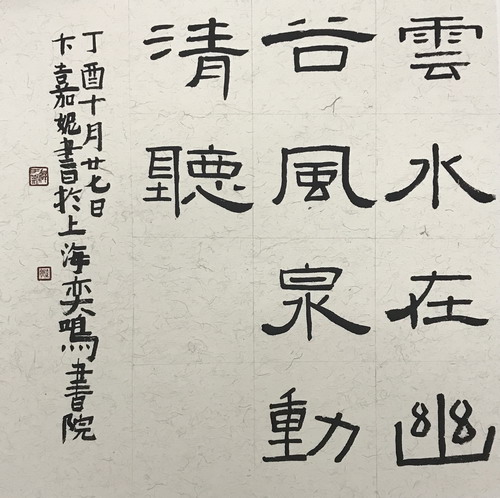 雲水在幽
谷風泉動
清聽
丁酉十月廿七日
卞嘉妮書於上海奕鳴書院